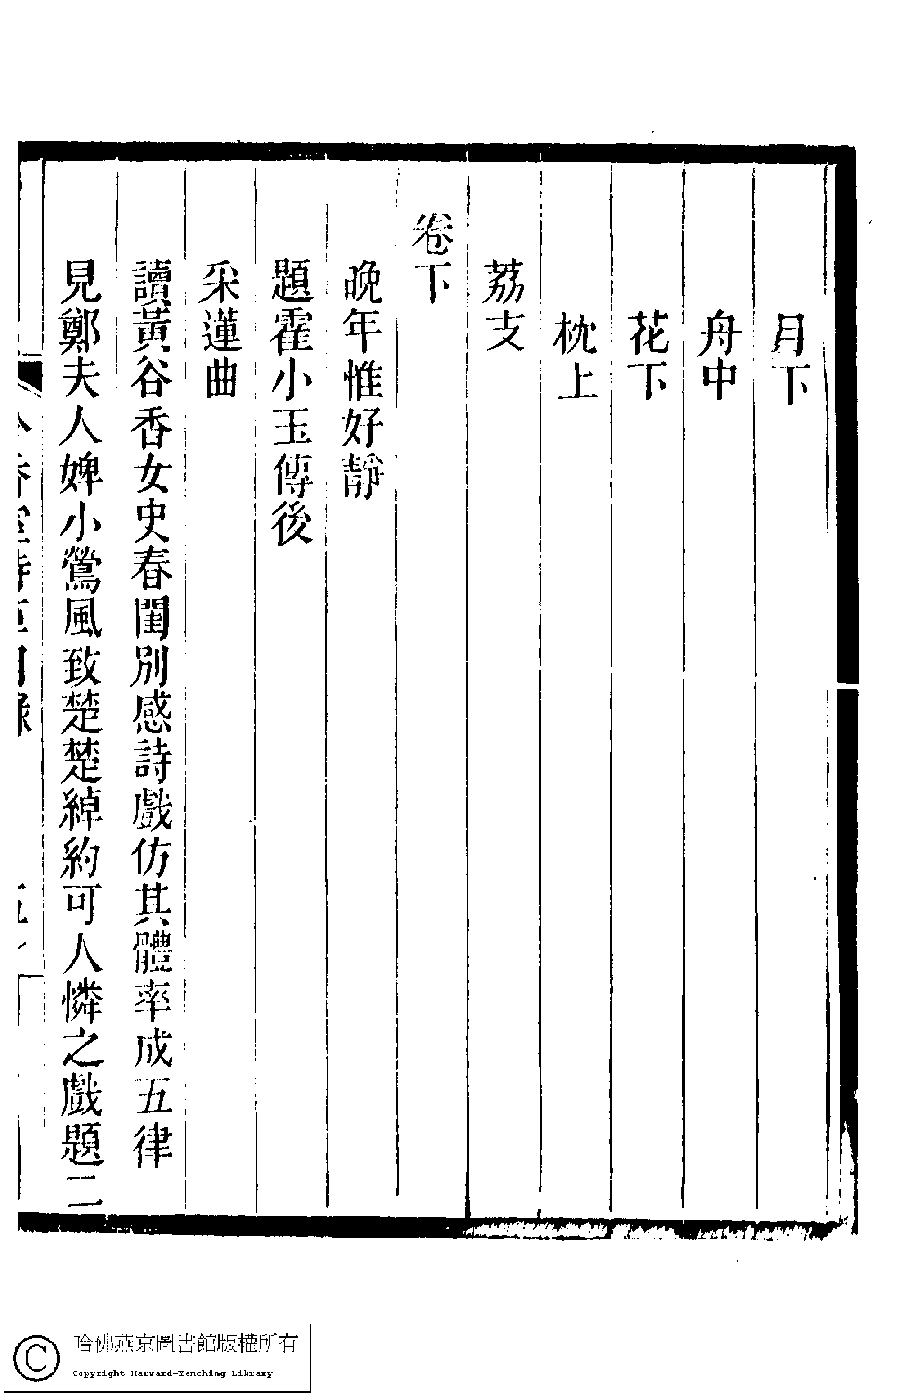 月下
舟中
花下
枕上
荔支
卷下
晚年惟好靜
題霍小玉傳後
采蓮曲
讀黃谷香女史春閨別感詩戲仿其體率成五律
見鄭夫人婢小鶯風致楚楚綽約可人憐之戲題二
哈佛燕京圖書館版權所有
Copyright Harvard-Yenching Library